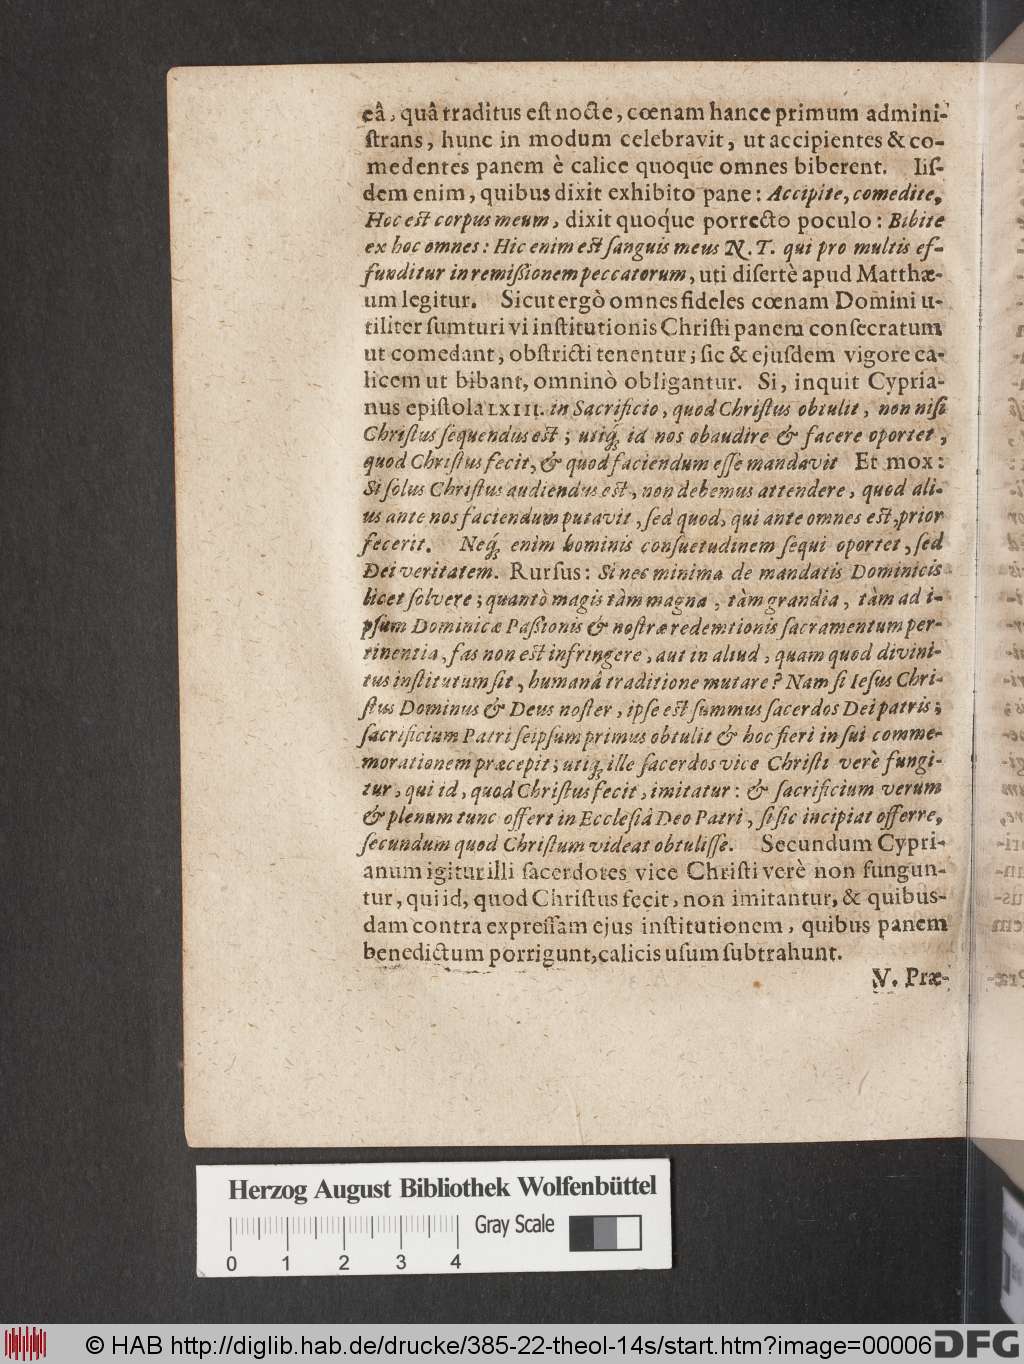 eâ, quâ traditus eſt nocte, cœnam hance primum admini-
ſtrans, hunc in modum celebravit, ut accipientes & co-
medentes panem è calice quoque omnes biberent. Iiſ-
dem enim, quibus dixit exhibito pane: Accipite, comedite,
Hoc est corpus meum, dixit quoque porrecto poculo: Bibite
ex hoc omnes: Hic enim est ſanguis meus N. T. qui pro multis ef-
funditur in remißionem peccatorum, uti diſertè apud Matthæ-
um legitur. Sicut ergò omnes fideles cœnam Domini u-
tiliter ſumturi vi inſtitutionis Chriſti panem conſecratum
ut comedant, obſtricti tenentur; ſic & ejuſdem vigore ca-
licem ut bibant, omninò obligantur. Si, inquit Cypria-
nus epiſtola LXIII. in Sacrificio, quod Chriſtus obtulit, non niſi
Chriſtus ſequendus est; utiq́; id nos obaudire & facere oportet,
quod Chriſtus fecit, & quod faciendum eſſe mandavit Et mox:
Si ſolus Chriſtus audiendus est, non debemus attendere, quod ali-
us ante nos faciendum putavit, ſed quod, qui ante omnes est, prior
fecerit. Neq́; enim hominis conſuetudinem ſequi oportet, ſed
Dei veritatem. Rurſus: Si nec minima de mandatis Dominicis
licet ſolvere; quantò magis tàm magna, tàm grandia, tàm ad i-
pſum Dominicæ Paßionis & noſtræ redemtionis ſacramentum per-
tinentia, fas non est infringere, aut in aliud, quam quod divini-
tus inſtitutum ſit, humanâ traditione mutare? Nam ſi Ieſus Chri-
ſtus Dominus & Deus noſter, ipſe est ſummus ſacerdos Dei patris;
ſacrificium Patri ſeipſum primus obtulit & hoc fieri in ſui comme-
morationem præcepit; utiq́; ille ſacerdos vice Chriſti verè fungi-
tur, qui id, quod Chriſtus fecit, imitatur: & ſacrificium verum
& plenum tunc offert in Eccleſiâ Deo Patri, ſi ſic incipiat offerre,
ſecundum quod Chriſtum videat obtuliſſe. Secundum Cypri-
anum igitur illi ſacerdotes vice Chriſti verè non fungun-
tur, qui id, quod Chriſtus fecit, non imitantur, & quibus-
dam contra expreſſam ejus inſtitutionem, quibus panem
benedictum porrigunt, calicis uſum ſubtrahunt.
V. Præ-
Herzog August Bibliothek Wolfenbüttel
Gray Scale
0 1 2 3 4
© HAB http://diglib.hab.de/drucke/385-22-theol-14s/start.htm?image=00006
DFG